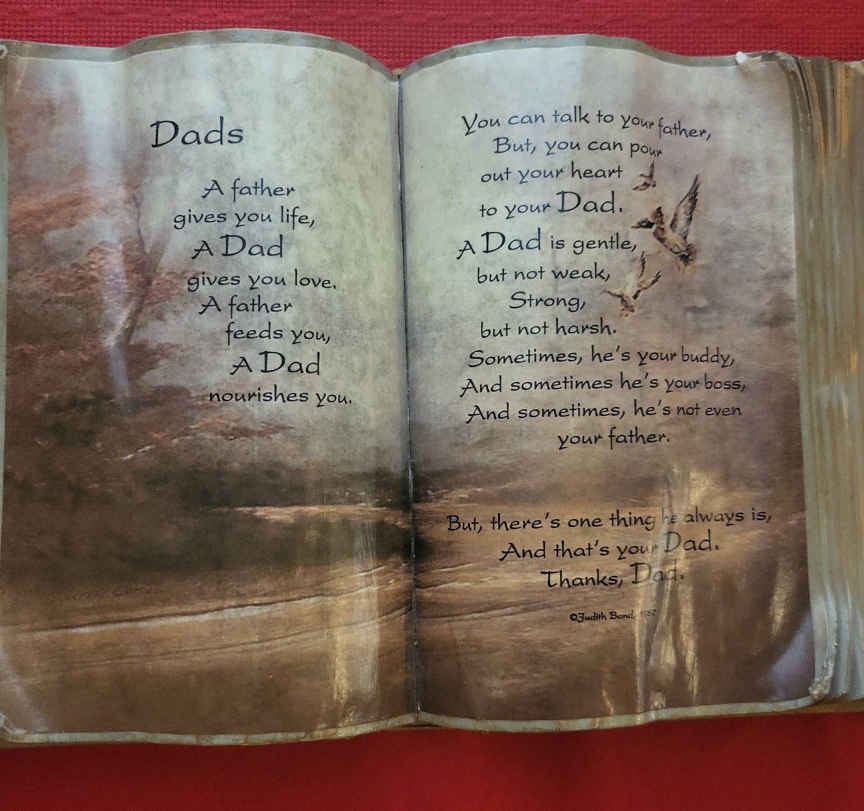 Dads
A father
gives you life,
A Dad
gives you love.
A father
feeds you,
A Dad
nourishes you.
You can talk to your father,
But, you can pour
out your heart
to your Dad.
A Dad is gentle,
but not weak,
Strong,
but not harsh.
Sometimes, he's your buddy,
And sometimes he's your boss,
And sometimes, he's not even
your father.
But, there's one thing he always is,
And that's your Dad.
Thanks, Dad.
©Judith Bond,